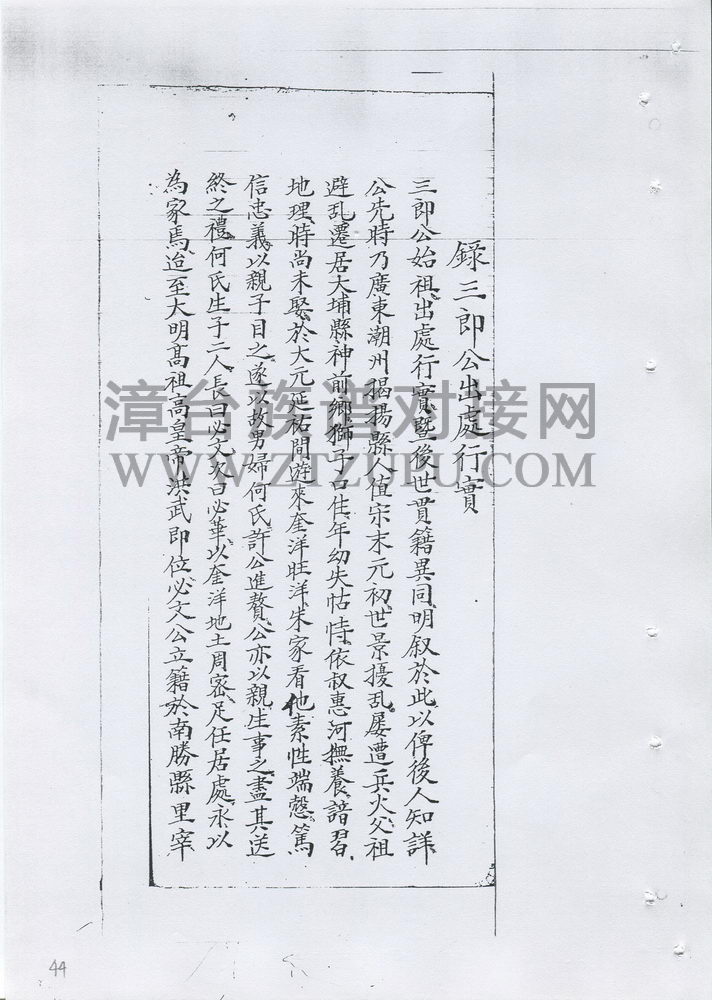 錄三郎公出處行實
三郎公始祖出處行實暨後世貫籍異同明叙於此以俾後人知詳
公先時乃廣東潮州揭揚縣人值宋末元初世景擾乱屡遭兵火父祖
避乱遷居大埔縣神前鄉獅子口住年幼失怙恃依叔惠河撫養諳習
地理時尚未娶於大元延祐間遊來奎洋旺洋朱家看他素性端慤篤
信忠義以親子目之遂以故男婦何氏許公進贅公亦以親生事之盡其送
終之禮何氏生子二人長曰必文次曰必華以奎洋地土周密足任居處永以
為家焉迨至大明髙祖高皇帝洪武即位必文公立籍於南勝縣里宰
漳台族谱对接网
WWW.ZTZUPU.COM
44